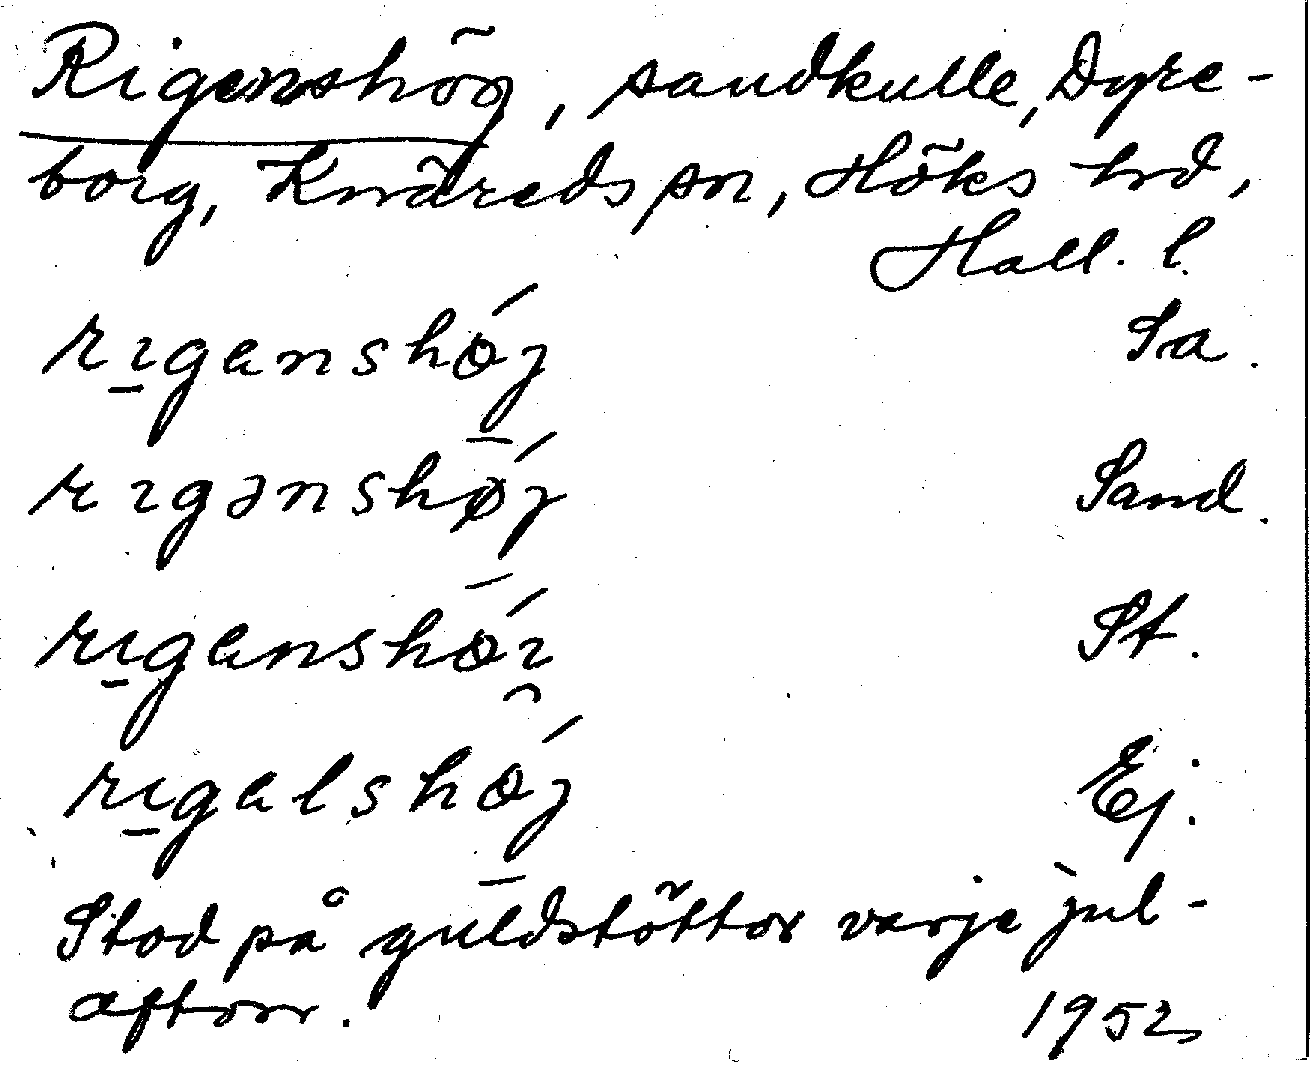 Rigenshög, sandkulle, Dyre-
borg, Knäreds sn, Höks hd,
Hall. l.
rıganshǿj Sa.
rıgənshǿj Sand.
rıganshǿı St.
rıgalshǿj Ej.
Stod på guldstöttor varje jul-
afton. 1952